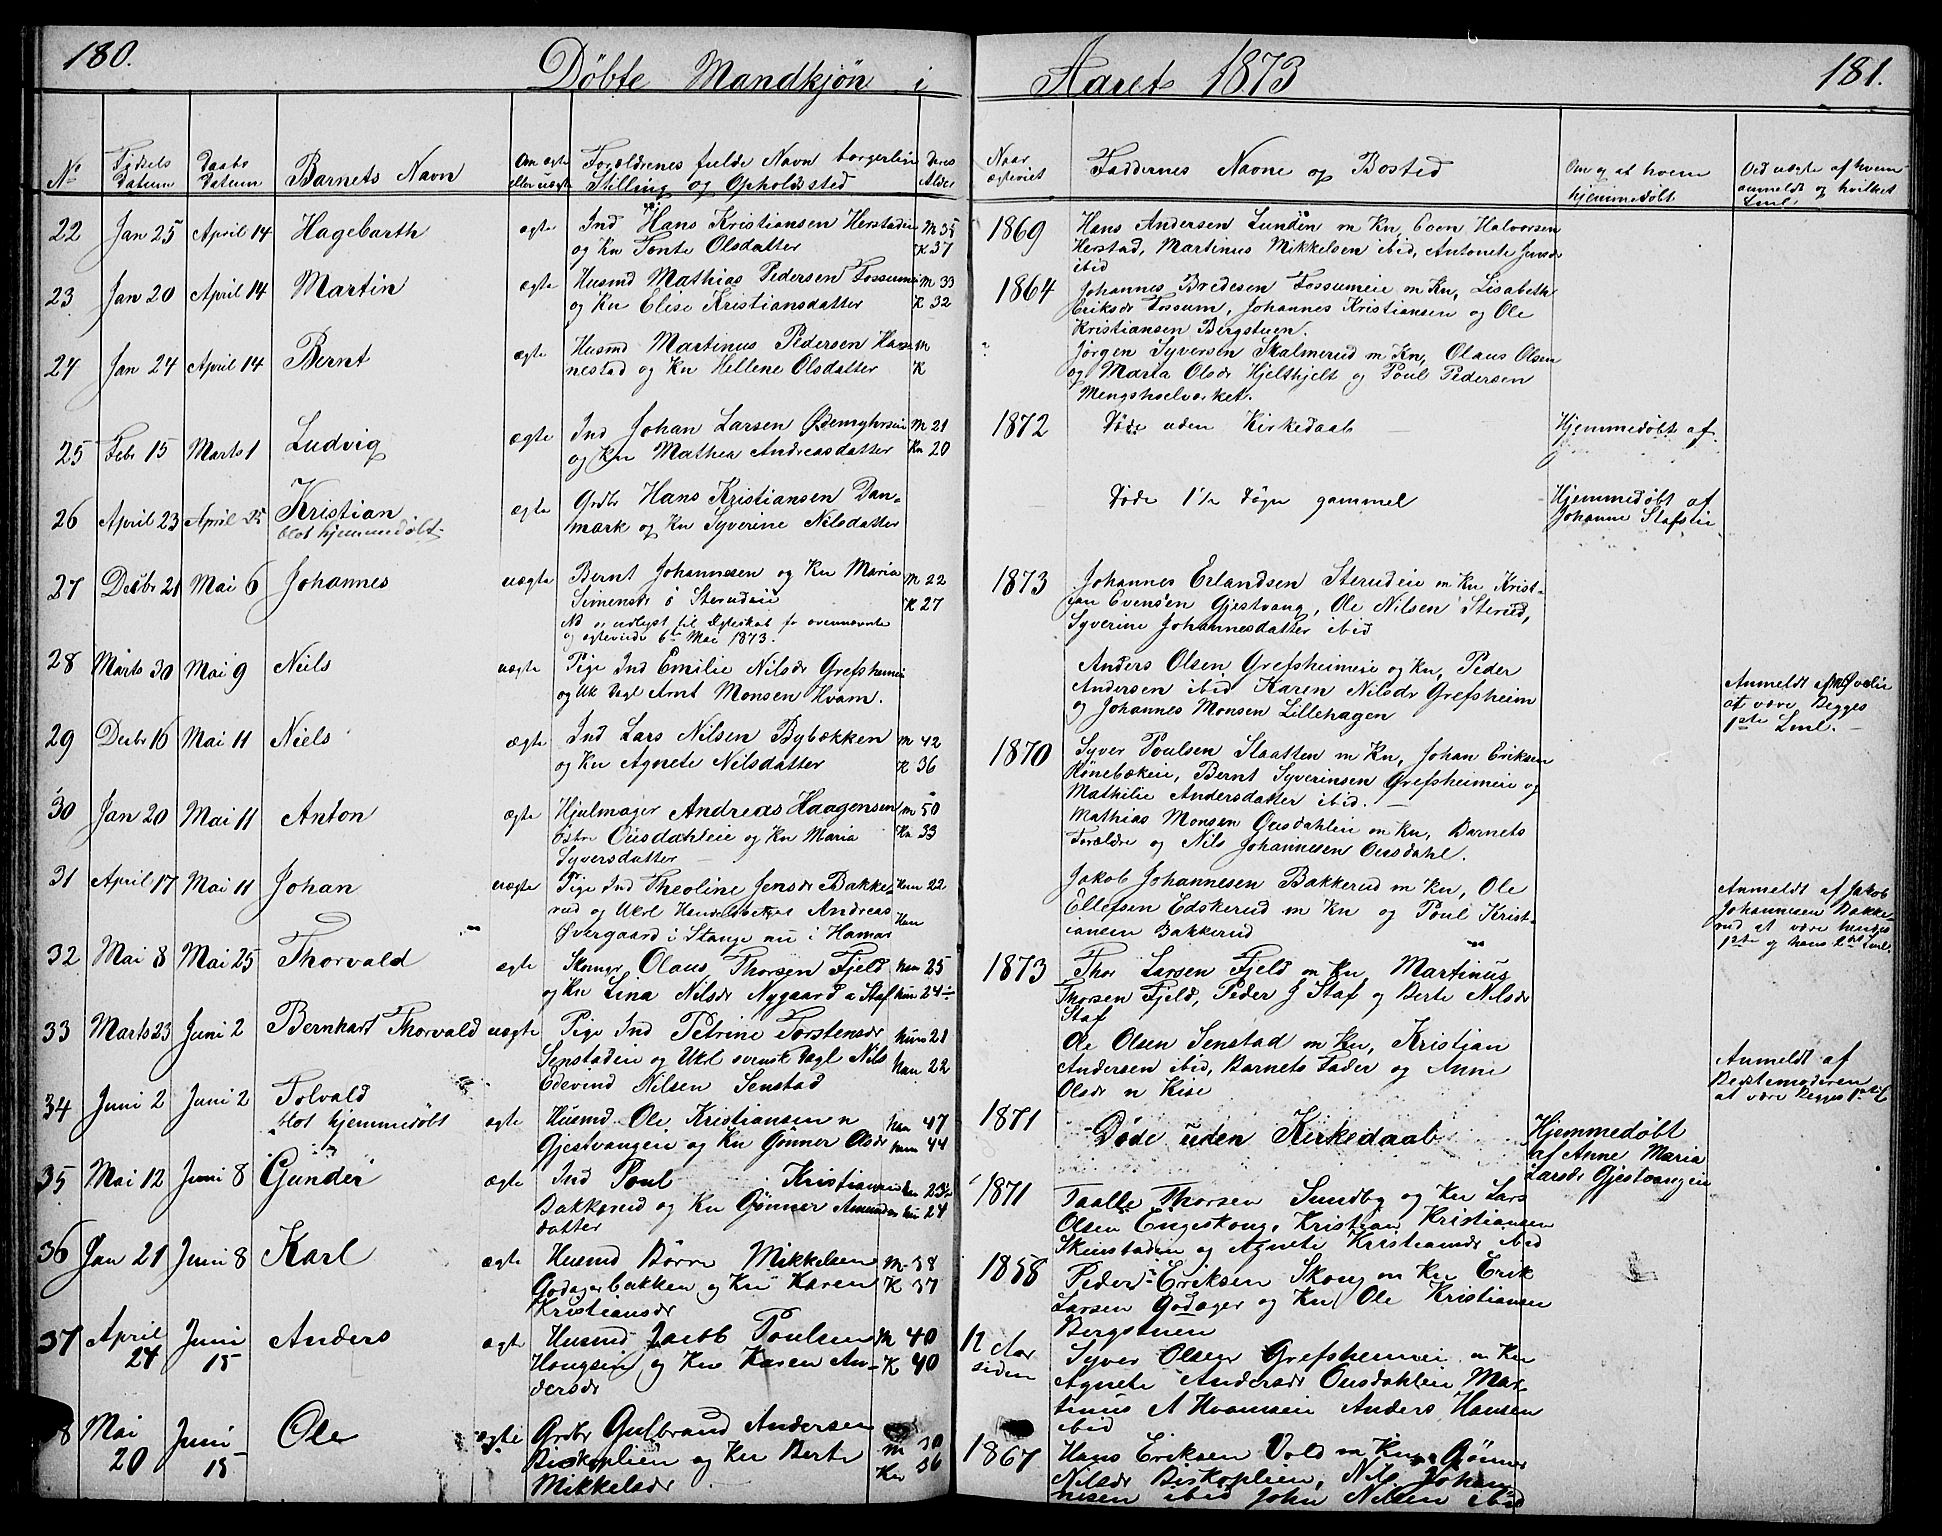 180.
Døbte Mandkjøn i Aaret 1873
181.
No
Fødsels Datum
Daabs Datum
Barnets Navn
Om ægte eller uægte
Forældrenes fulde Navn borgerlige Stilling og Opholdssted
Deres Alder
Naar ægteviet
Faddernes Navne og Bosted
Om og af hvem hjemmedøbt
Ved uægte af hvem anmeldt og hvilket Leml.
22 Jan 25 April 14 Hagebarth ægte Ind Hans Kristiansen Herstadeie M 35
og Kn Tonte Olsdatter K 37
1869 Hans Andersen Lunden m Kn, Even Halvorsen
Herstad, Martinus Mikkelsen ibid, Antonete Jensdr
ibid
23 Jan 20 April 14 Martin ægte Husmd Mathias Pedersen Fossumeie M 33
og Kn Elise Kristiansdatter K 32
1864 Johannes Bredesen Fossumeie m Kn, Lisabeth
Eriksdr Fossum, Johannes Kristiansen og Ole
Kristiansen Bergstuen.
24 Jan 24 April 14 Bernt ægte Husmd Martinus Pedersen Han M
nestad og Kn Hellene Olsdatter K
Jørgen Syversen Skalmerud m Kn, Olaus Olsen
og Maria Olsdr Hjelthjelt og Poul Pedersen
Mengshoelværket.
25 Febr 15 Marts 1 Ludvig ægte Ind Johan Larsen Ødemyhrseie M 21
og Kn Mathea Andreasdatter Kn 20
1872 Døde uden Kirkedaab
Hjemmedøbt af
26 April 23 April 25 Kristian ægte Grdbr Hans Kristiansen Dan=
blot hjemmedøbt mark og Kn Syverine Nilsdatter
Døde 1 1/2 Døgn gammel
Hjemmedøbt af
Johanne Stafseie
27 Decbr 21 Mai 6 Johannes uægte Bernt Johannesen og Kn Maria M 22
Simensdr i Sterudeie K 27
NB er udlyst til Ægteskab for ovennævnte
og ægteviede 6te Mai 1873.
1873 Johannes Erlandsen Sterudeie m Kn Krist-
ian Evensen Gjestvang, Ole Nilsen Sterud,
Syverine Johannesdatter ibid
28 Marts 30 Mai 9 Niels uægte Pige Ind Emilie Nilsdr Grefsheimeie
og Uk Dagl Arnt Monsen Hvam.
Anders Olsen Grefsheimeie og Kn, Peder
Andersen ibid Karen Nilsdr Grefsheim
og Johannes Monsen Lillehagen
Anmeldt af
at være Begges
1ste Leml.
29 Decbr 16 Mai 11 Niels ægte Ind Lars Nilsen Bybækken M 42
og Kn Agnete Nilsdatter K 36
1870 Syver Poulsen Staatten m Kn, Johan Eriksen
Rønebækeie, Bernt Syverinsen Grefsheimeie og
Mathilie Andersdatter ibid.
30 Jan 20 Mai 11 Anton ægte Hjulmager Andreas Haagensen M 50
Østre Ousdahleie og Kn Maria Kn 33
Syversdatter
Mathias Monsen Ousdahleie m Kn, Barnets
Forældre og Nils Johannesen Ousdahl.
31 April 17 Mai 11 Johan uægte Pige Ind Theoline Jensdr Bakke- Hun 22
rud og Ukrl Handelsbetjent Andreas Han
Øvergaard i Stange nu i Hamar
Jakob Johannesen Bakkerud m Kn, Ole
Ellefsen Edskerud m Kn og Poul Krist-
iansen Bakkerud
Anmeldt af Jakob
Johannesen Bakke-
rud at være hendes
1ste og hans 2det Leml.
32 Mai 8 Mai 25 Thorvald ægte Skomgr Olaus Thorsen Fjeld Han 25
og Kn Lina Nilsdr Nygaard a Staf hun 24
1873 Thor Larsen Fjeld m Kn, Martinus
Thorsen Fjeld, Peder J Staf og Berte Nilsdr
Staf
33 Marts 23 Juni 2 Bernhart Thorvald uægte Pige Ind Petrine Torstensdr hun 21
Senstadeie og Ukl svensk Dagl Nils han 22
Edevind Nilsen Senstad
Ole Olsen Senstad m Kn, Kristian
Andersen ibid, Barnets Fader og Anne
Olsdr n Kise
Anmeldt af
Bestemoderen
at være Begges 1ste L
34 Juni 2 Juni 2 Tolvald ægte Husmd Ole Kristiansen n Han 47
blot hjemmedøbt Gjestvangen og Kn Gønner Olsdr hun 44
1871 Døde uden Kirkedaab
Hjemmedøbt
af Anne Maria
Larsdr Gjestvangeie
35 Mai 12 Juni 8 Gunder ægte Ind Poul Kristiansen han 23
Bakkerud og Kn Gønner Amunds hun 24
datter
1871 Taalle Thorsen Sundby og Kn Lars
Olsen Engeskong, Kristian Kristiansen
Skeinstaden og Agnete Kristiansdr ibid
36 Jan 21 Juni 8 Karl ægte Husmd Børre Mikkelsen M 38
Godagerbakken og Kn Karen K 37
Kristiansdr
1858 Peder Eriksen Skong m Kn Erik
Larsen Godager og Kn, Ole Kristiansen
Bergstuen
37 April 24 Juni 15 Anders ægte Husmd Jacob Poulsen M 40
Hougseie og Kn Karen An- K 40
dersdr
12 Aar siden Syver Olsen Grefsheimei m Kn
Agnete Andersdr Ousdahleie Mar-
tinus A Hvamseie Anders Hansen
ibid
8 Mai 20 Juni 15 Ole ægte Grdbr Gulbrand Andersen M 30
Biskoplien og Kn Berte Kn 36
Mikkelsdr
1867 Hans Eriksen Vold m Kn, Gønner
Nilsdr Biskoplien, Nils Johan
nesen ibid John Nilsen ibid